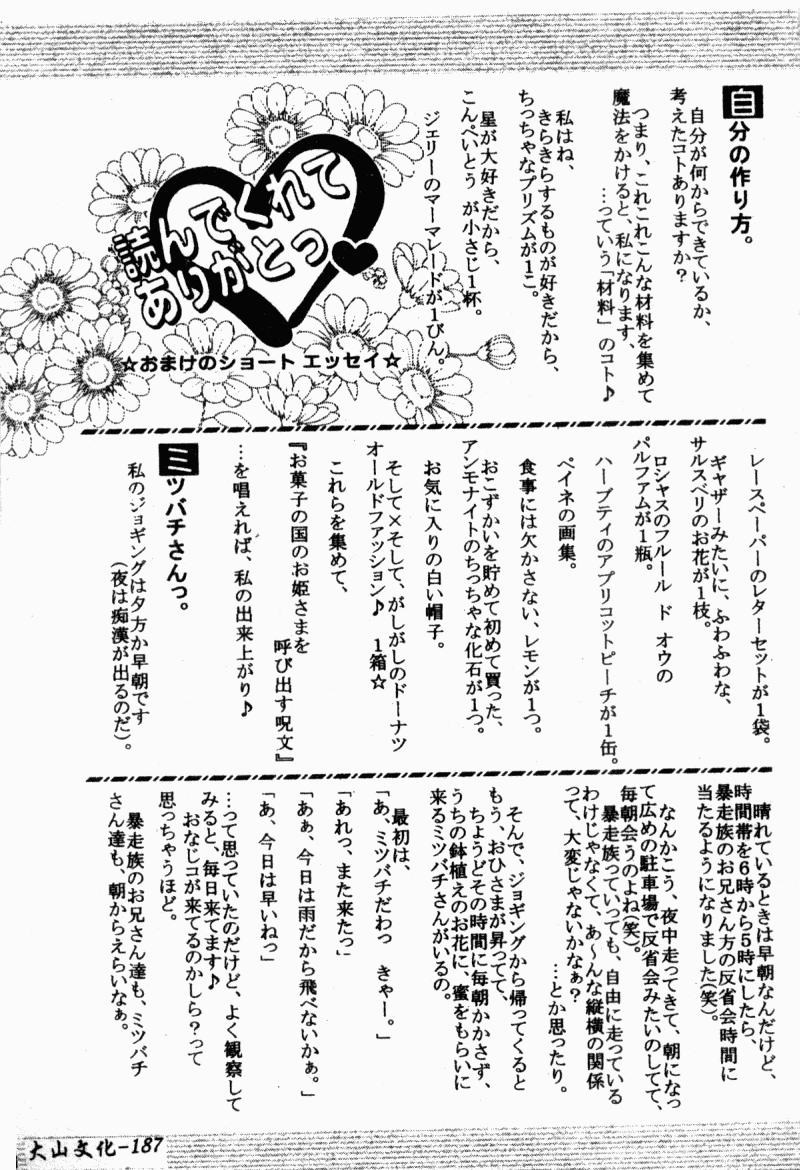 自分の作り方。
自分が何からできているか、
考えたコトありますか?
つまり、これこれこんな材料を集めて
魔法をかけると、私になります、
…っていう「材料」のコト♪
私はね、
きらきらするものが好きだから、
ちっちゃなプリズムが1こ。
星が大好きだから、
こんぺいとう が小さじ1杯。
ジェリーのマーマレードが1びん。
読んでくれて
ありがとっ♥
☆おまけのショート エッセイ☆
レースペーパーのレターセットが1袋。
ギャザーみたいに、ふわふわな、
サルスベリのお花が1枝。
ロシャスのフルール ド オウの
パルファムが1瓶。
ハーブティのアプリコットピーチが1缶。
ペイネの画集。
食事には欠かさない、レモンが1つ。
おこずかいを貯めて初めて買った、
アンモナイトのちっちゃな化石が1つ。
お気に入りの白い帽子。
そして×そして、がしがしのドーナツ
オールドファッション♪ 1箱☆
これらを集めて、
『お菓子の国のお姫さまを
呼び出す呪文』
…を唱えれば、私の出来上がり♪
ミツバチさんっ。
私のジョギングは夕方か早朝です
(夜は痴漢が出るのだ)。
晴れているときは早朝なんだけど、
時間帯を6時から5時にしたら、
暴走族のお兄さん方の反省会時間に
当たるようになりました(笑)。
なんかこう、夜中走ってきて、朝になっ
て広めの駐車場で反省会みたいのしてて、
毎朝会うのよね(笑)。
暴走族っていっても、自由に走っている
わけじゃなくて、あ〜んな縦横の関係
って、大変じゃないかなぁ?
…とか思ったり。
そんで、ジョギングから帰ってくると
もう、おひさまが昇ってて、
ちょうどその時間に毎朝かかさず、
うちの鉢植えのお花に、蜜をもらいに
来るミツバチさんがいるの。
最初は、
「あ、ミツバチだわっ きゃー。」
「あれっ、また来たっ」
「あぁ、今日は雨だから飛べないかぁ。」
「あ、今日は早いねっ」
…って思っていたのだけど、よく観察して
みると、毎日来てます♪
おなじコが来てるのかしら?って
思っちゃうほど。
暴走族のお兄さん達も、ミツバチ
さん達も、朝からえらいなぁ。
大山文化-187